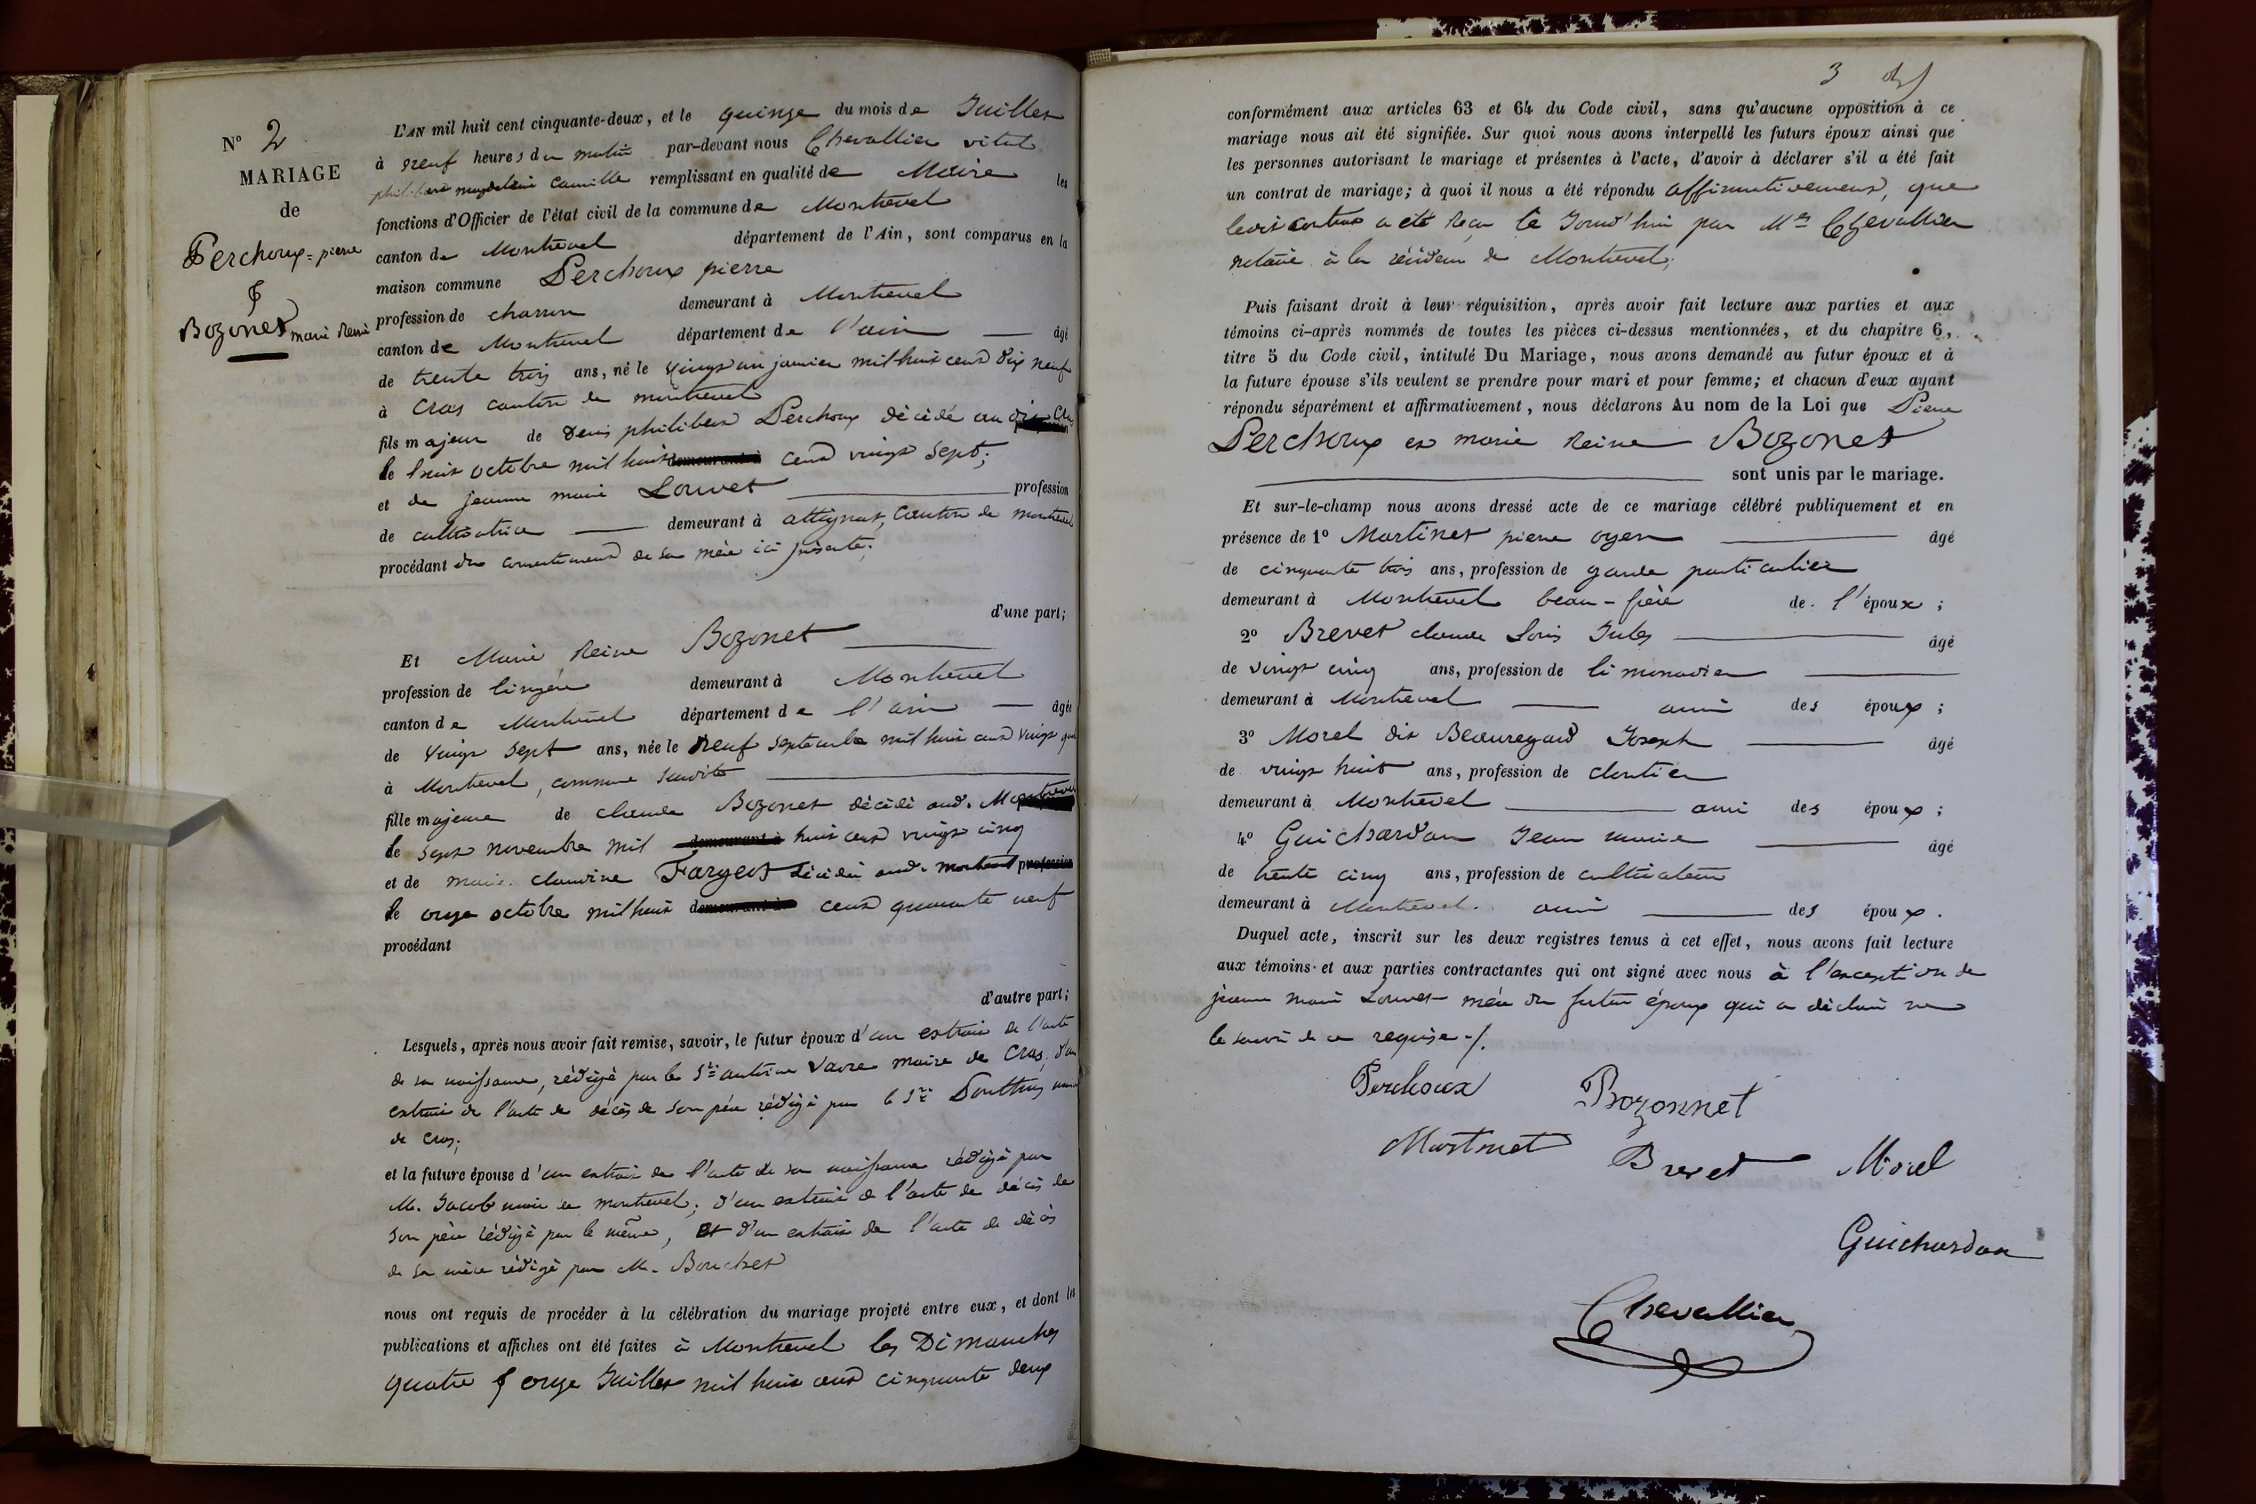 N° 2
MARIAGE
de
Perchoux = pierre
&
Bozonet marie Reine
L'AN mil huit cent cinquante-deux, et le quinze du mois de Juillet
à neuf heures du matin par-devant nous Chevallier vital
philibert magdeleine Camille remplissant en qualité de Maire les
fonctions d'Officier de l'état civil de la commune de Montrevel
canton de Montrevel département de l'Ain, sont comparus en la
maison commune Perchoux pierre
profession de charron demeurant à Montrevel
canton de Montrevel département de l'ain âgé
de trente trois ans, né le vingt un janvier mil huit cent dix neuf
à Cras canton de montrevel
fils majeur de Denis philibert Perchoux décédé au dit Cras
le huit octobre mil huit cent vingt sept;
et de jeanne marie Louvet profession
de cultivatrice demeurant à attignat, canton de montrevel
procédant du consentement de sa mère ici présente;
d'une part;
Et Marie Reine Bozonet
profession de lingère demeurant à Montrevel
canton de Montrevel département de l'ain âgée
de vingt sept ans, née le neuf septembre mil huit cent vingt quatre
à Montrevel, commune susdite
fille majeure de claude Bozonet décédé aud. Montrevel
le sept novembre mil huit cent vingt cinq
et de marie claudine Fargeot décédée aud. montrevel
le onze octobre mil huit cent quarante neuf
procédant
d'autre part;
Lesquels, après nous avoir fait remise, savoir, le futur époux d'un extrait de l'acte
de sa naissance, rédigé par le Sr antoine Vavre maire de Cras, d'un
extrait de l'acte de décès de son père rédigé par le Sr maire
de Cras;
et la future épouse d'un extrait de l'acte de sa naissance rédigé par
M. Jacob maire de montrevel; d'un extrait de l'acte de décès de
son père rédigé par le même, Et d'un extrait de l'acte de décès
de sa mère rédigé par M. Bouchet
nous ont requis de procéder à la célébration du mariage projeté entre eux, et dont les
publications et affiches ont été faites à Montrevel les Dimanches
quatre & onze Juillet mil huit cent cinquante deux
3
conformément aux articles 63 et 64 du Code civil, sans qu'aucune opposition à ce
mariage nous ait été signifiée. Sur quoi nous avons interpellé les futurs époux ainsi que
les personnes autorisant le mariage et présentes à l'acte, d'avoir à déclarer s'il a été fait
un contrat de mariage; à quoi il nous a été répondu affirmativement, que
ledit contrat a été reçu le Jourd'hui par Me Chevallier
notaire à la résidence de Montrevel;
Puis faisant droit à leur réquisition, après avoir fait lecture aux parties et aux
témoins ci-après nommés de toutes les pièces ci-dessus mentionnées, et du chapitre 6,
titre 5 du Code civil, intitulé Du Mariage, nous avons demandé au futur époux et à
la future épouse s'ils veulent se prendre pour mari et pour femme; et chacun d'eux ayant
répondu séparément et affirmativement, nous déclarons Au nom de la Loi que Pierre
Perchoux et marie Reine Bozonet
sont unis par le mariage.
Et sur-le-champ nous avons dressé acte de ce mariage célébré publiquement et en
présence de 1° Martinet pierre oyen âgé
de cinquante trois ans, profession de garde particulier
demeurant à Montrevel beau-frère de l'époux;
2° Brevet claude Loüis Jules âgé
de vingt cinq ans, profession de limonadier
demeurant à Montrevel ami des époux;
3° Morel dit Beauregard Joseph âgé
de vingt huit ans, profession de cloutier
demeurant à Montrevel ami des époux;
4° Guichardan Jean marie âgé
de trente cinq ans, profession de cultivateur
demeurant à Montrevel. ami des époux.
Duquel acte, inscrit sur les deux registres tenus à cet effet, nous avons fait lecture
aux témoins et aux parties contractantes qui ont signé avec nous à l'exception de
jeanne marie Louvet mère du futur époux qui a déclaré ne
le savoir de ce requise ./.
Perchoux Bozonnet
Martinet Brevet Morel
Guichardan
Chevallier